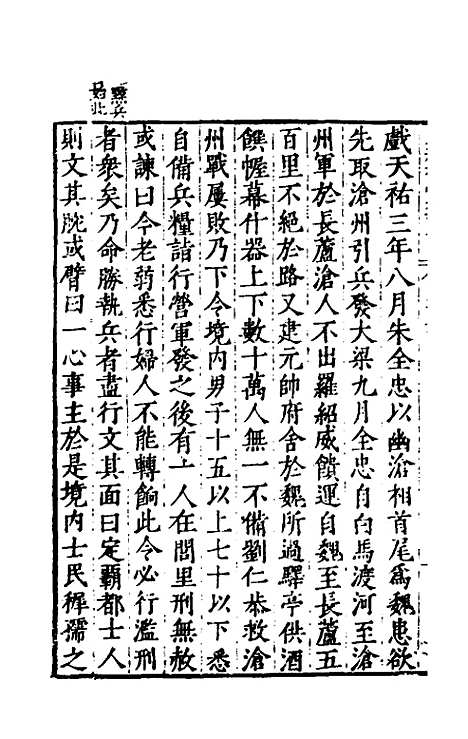 戲天祐三年八月朱全忠以幽滄相首尾爲魏患欲
先取滄州引兵發大梁九月全忠自白馬渡河至滄
州軍於長蘆滄人不出羅紹威饋運自魏至長蘆五
百里不絕於路又建元帥府舍於魏所過驛亭供酒
饌幄幕什器上下數十萬人無一不備劉仁恭救滄
州戰屢敗乃下令境内男子十五以上七十以下悉
自備兵糧詣行營軍發之後有一人在閭里刑無赦
或諫曰今老弱悉行婦人不能轉餉此令必行濫刑
者衆矣乃命勝執兵者盡行文其面曰定霸都士人
則文其腕或臂曰一心事主於是境内士民穉孺之
點兵